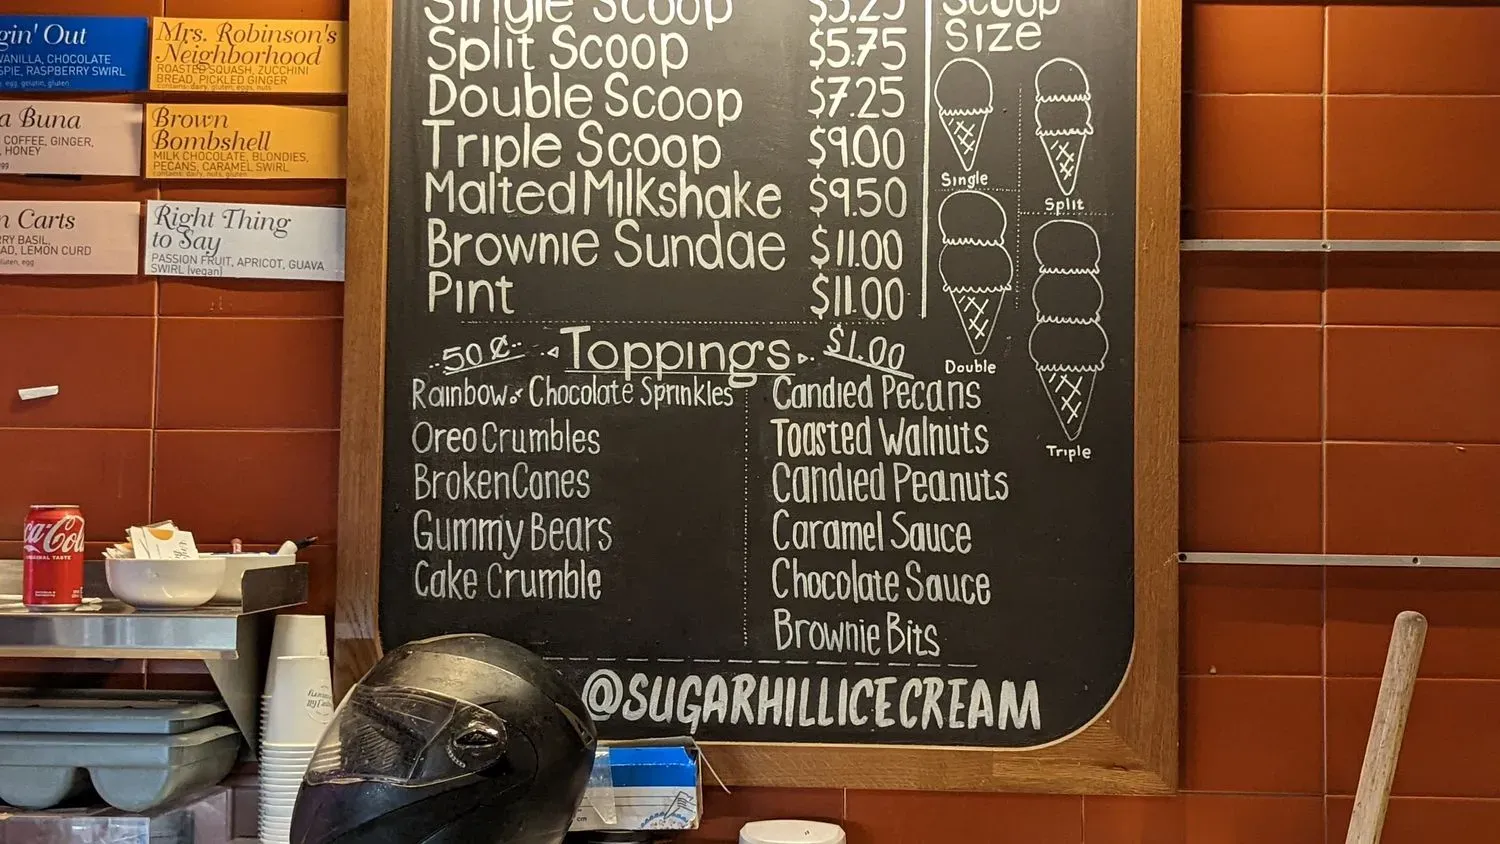 gin' Out
VANILLA, CHOCOLATE
SPIE, RASPBERRY SWIRL
egg, gelatin, gluten
Mrs. Robinson's
Neighborhood
ROASTED SQUASH, ZUCCHINI
BREAD, PICKLED GINGER
contains: dairy, gluten, eggs, nuts
a Buna
COFFEE, GINGER,
, HONEY
egg
Brown
Bombshell
MILK CHOCOLATE, BLONDIES,
PECANS, CARAMEL SWIRL
contains: dairy, nuts, gluten
n Carts
RRY BASIL,
AD, LEMON CURD
gluten, egg
Right Thing
to Say
PASSION FRUIT, APRICOT, GUAVA
SWIRL (vegan)
Single Scoop $5.25
Split Scoop $5.75
Double Scoop $7.25
Triple Scoop $9.00
Malted Milkshake $9.50
Brownie Sundae $11.00
Pint $11.00
Scoop
Size
Single
Split
Double
Triple
50¢ Toppings $1.00
Rainbow or Chocolate Sprinkles
Oreo Crumbles
Broken Cones
Gummy Bears
Cake Crumble
Candied Pecans
Toasted Walnuts
Candied Peanuts
Caramel Sauce
Chocolate Sauce
Brownie Bits
@SUGARHILLICECREAM
ca-Cola
ORIGINAL TASTE
cm